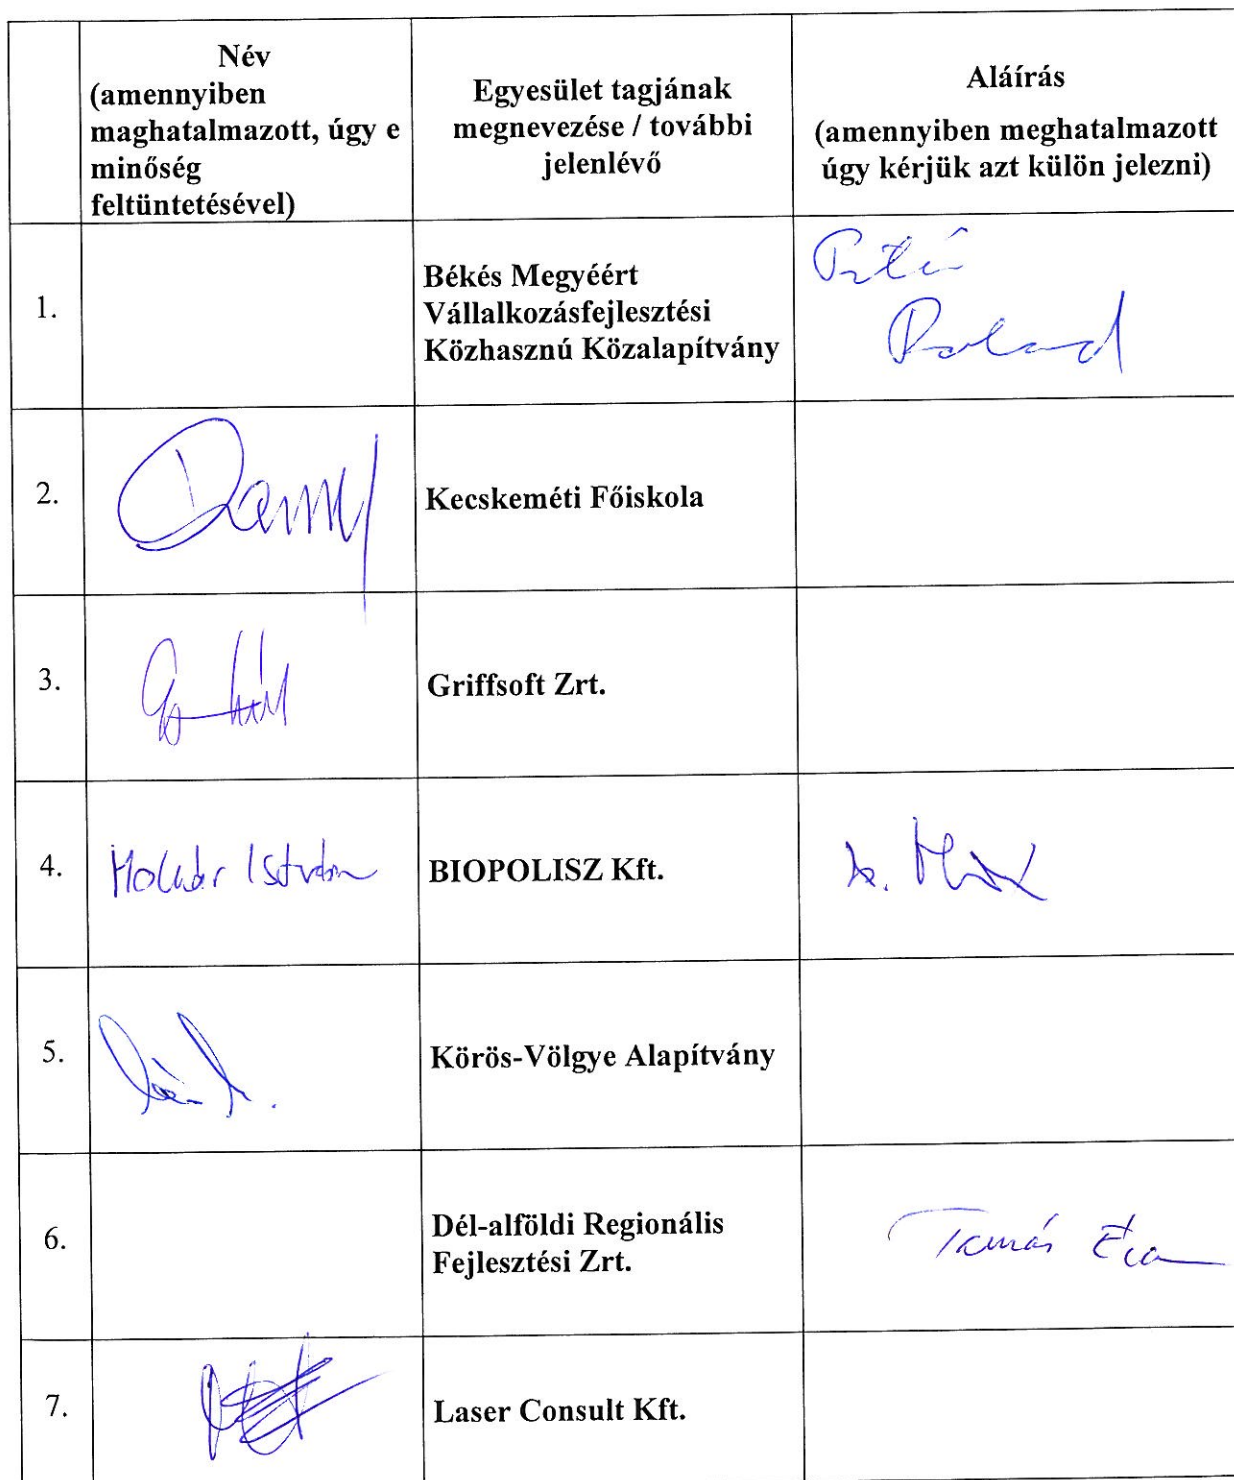 Név
(amennyiben
maghatalmazott, úgy e
minőség
feltüntetésével)
Egyesület tagjának
megnevezése / további
jelenlévő
Aláírás
(amennyiben meghatalmazott
úgy kérjük azt külön jelezni)
1.
Békés Megyéért
Vállalkozásfejlesztési
Közhasznú Közalapítvány
Roland
2.
Kecskeméti Főiskola
3.
Griffsoft Zrt.
4.
Molnár István
BIOPOLISZ Kft.
5.
Körös-Völgye Alapítvány
6.
Dél-alföldi Regionális
Fejlesztési Zrt.
Tamás Éva
7.
Laser Consult Kft.